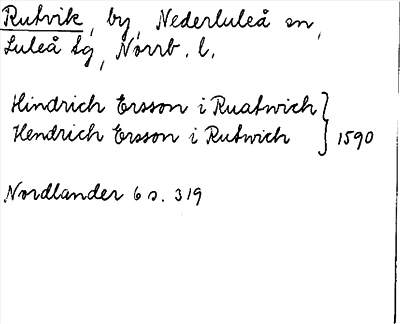 Rutvik, by, Nederluleå sn,
Luleå tg, Norrb. l.
Hindrich Ersson i Ruatwich
Hendrich Ersson i Rutwich } 1590
Nordlander 6 s. 319